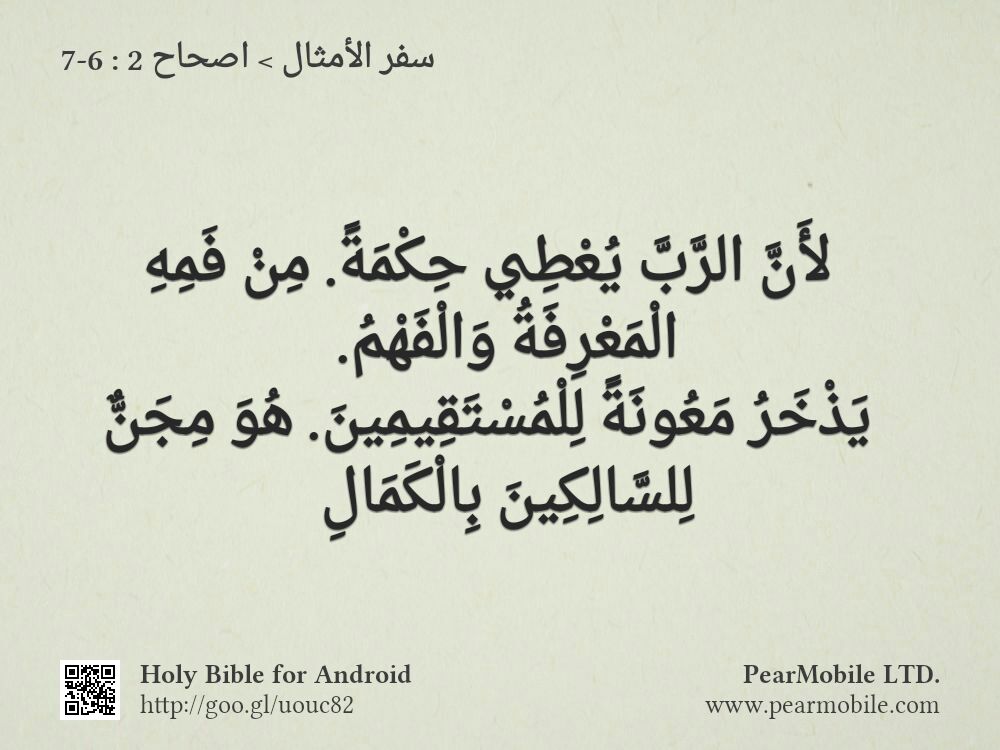 سفر الأمثال > اصحاح 2 : 6-7
لأَنَّ الرَّبَّ يُعْطِي حِكْمَةً. مِنْ فَمِهِ
الْمَعْرِفَةُ وَالْفَهْمُ.
يَذْخَرُ مَعُونَةً لِلْمُسْتَقِيمِينَ. هُوَ مِجَنٌّ
لِلسَّالِكِينَ بِالْكَمَالِ
Holy Bible for Android
http://goo.gl/uouc82
PearMobile LTD.
www.pearmobile.com